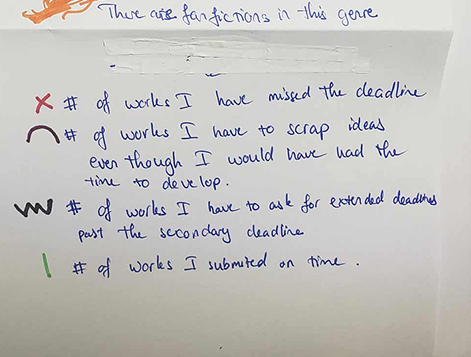 There are fanfictions in this genre
# of works I have missed the deadline
# of works I have to scrap ideas
even though I would have had the
time to develop.
# of works I have to ask for extended deadlines
past the secondary deadline
# of works I submited on time.